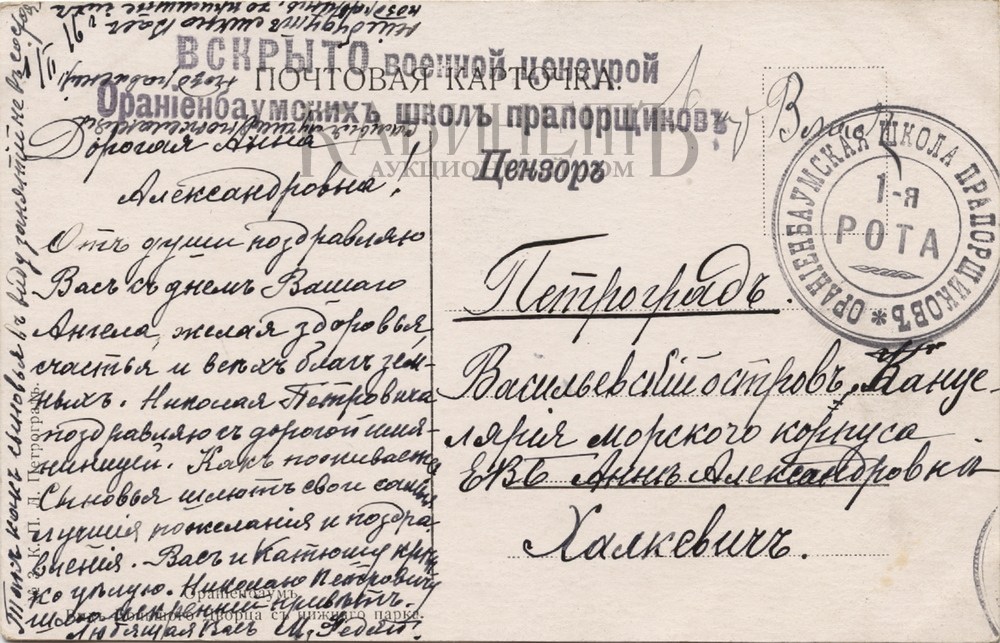 ВСКРЫТО военной цензурой
ПОЧТОВАЯ КАРТОЧКА.
Ораніенбаумскихъ школъ прапорщиковъ
Цензоръ
КАБИНЕТЪ
АУКЦИОННЫЙ ДОМ
ОРАНІЕНБАУМСКАЯ ШКОЛА ПРАПОРЩИКОВЪ *
1-я
РОТА
Дорогая Анна
Александровна!
Отъ души поздравляю
Васъ съ днемъ Вашего
Ангела, желая здоровья
счастья и всѣхъ благъ зем-
ныхъ. Николая Петровича
поздравляю съ дорогой имя-
нинницей. Какъ поживаете
Сыновья шлютъ свои самыя
лучшія пожеланія и поздра-
вленія. Васъ и Катюшу крѣп-
ко цѣлую. Николаю Петровичу
шлю искренній привѣтъ.
Любящая Васъ
Петроградъ.
Васильевскій островъ, Канце-
лярія морского корпуса
ЕВБ Аннѣ Александровнѣ
Халкевичъ.
К. П. Д. Петроградъ.
Ораніенбаумъ
Дворца съ нижняго парка.